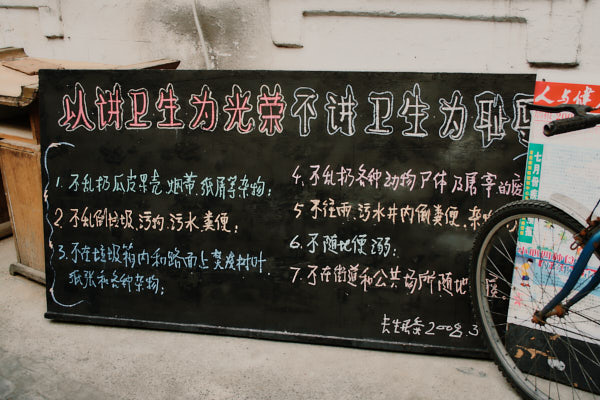 以讲卫生为光荣不讲卫生为耻辱
1. 不乱扔瓜皮果壳、烟蒂、纸屑等杂物;
2. 不乱倒垃圾、污物、污水粪便;
3. 不在垃圾箱内和路面上焚废树叶
纸张和各种杂物;
4. 不乱扔各种动物尸体及屠宰的
5 不往雨、污水井内倒粪便、杂物
6. 不随地便溺;
7. 不在街道和公共场所随地
2008.3
人与健
七月份